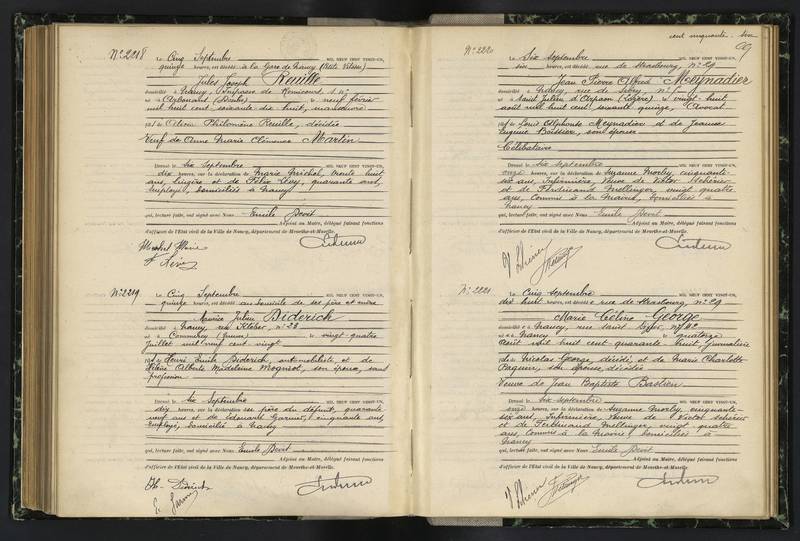 N° 2218
Le Cinq Septembre MIL NEUF CENT VINGT-UN,
quinze heures, est décédé à la Gare de Nancy (Petite Vitesse)
Jules Joseph Reuille
domicilié à Nancy, Impasse de Romécourt,
né à Arbouans (Doubs) le neuf février
mil huit cent soixante dix huit, manœuvre
fils de Philomène Reuille, décédée
Veuf de Anne Marie Clémence Martin
Dressé le six Septembre MIL NEUF CENT VINGT-UN,
dix heures, sur la déclaration de Marie Michel, trente huit
ans, lingère et de Félix Lévy, quarante ans,
employé, domiciliés à Nancy
qui, lecture faite, ont signé avec Nous Emile Devit
Adjoint au Maire, délégué faisant fonctions
d'officier de l'Etat civil de la Ville de Nancy, département de Meurthe-et-Moselle.
Michel Marie
F Lévy
N° 2219
Le Cinq Septembre MIL NEUF CENT VINGT-UN,
quinze heures, est décédé au domicile de ses père et mère
Maurice Julien Diderich
domicilié à Nancy, rue Kléber, n° 28
né à Commercy (Meuse) le vingt-quatre
Juillet mil neuf cent vingt
fils de Henri Emile Diderich, automobiliste, et de
Alberte Madeleine Mognot, son épouse, sans
profession
Dressé le six Septembre MIL NEUF CENT VINGT-UN,
dix heures, sur la déclaration du père du défunt, quarante
neuf ans et de Edouard Garnier, cinquante ans,
employé, domiciliés à Nancy
qui, lecture faite, ont signé avec Nous Emile Devit
Adjoint au Maire, délégué faisant fonctions
d'officier de l'Etat civil de la Ville de Nancy, département de Meurthe-et-Moselle.
Diderich
cent cinquante
N° 2220
Le Six septembre MIL NEUF CENT VINGT-UN,
six heures, est décédé rue de Strasbourg, n° 29
Jean Pierre Alfred Meynadier
domicilié à Nancy, rue de
né à Saint Julien d'Arpaon (Lozère) le vingt huit
août mil huit cent soixante quinze, avocat
fils de Louis Alphonse Meynadier et de Jeanne
Eugénie Boissier, son épouse
Célibataire
Dressé le six septembre MIL NEUF CENT VINGT-UN,
onze heures, sur la déclaration de Suzanne Morly, cinquante-
six ans, Infirmière, Veuve de Victor
et de Ferdinand Mellinger, vingt quatre
ans, Commis à la Mairie, domiciliés à
Nancy
qui, lecture faite, ont signé avec Nous Emile Devit
Adjoint au Maire, délégué faisant fonctions
d'officier de l'Etat civil de la Ville de Nancy, département de Meurthe-et-Moselle.
N° 2221
Le Cinq septembre MIL NEUF CENT VINGT-UN,
dix huit heures, est décédée rue de Strasbourg, n° 29
Marie Céline George
domiciliée à Nancy, rue Saint
née à Nancy le quatorze
Août mil huit cent quarante huit, journalière
fille de Nicolas George, décédé, et de Marie Charlotte
Paquin, son épouse, décédée
Veuve de Jean Baptiste Bastien
Dressé le six septembre MIL NEUF CENT VINGT-UN,
onze heures, sur la déclaration de Suzanne Morly, cinquante-
six ans, Infirmière, Veuve de Victor
et de Ferdinand Mellinger, vingt quatre
ans, Commis à la Mairie, domiciliés à
Nancy
qui, lecture faite, ont signé avec Nous Emile Devit
Adjoint au Maire, délégué faisant fonctions
d'officier de l'Etat civil de la Ville de Nancy, département de Meurthe-et-Moselle.